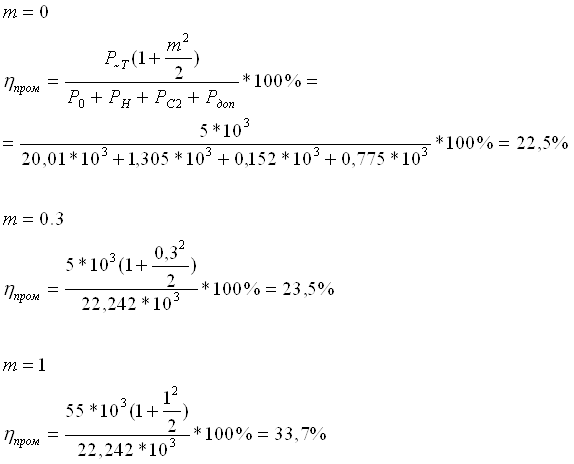 m = 0
η_пром = P_~T(1 + m²/2) / (P_0 + P_H + P_C2 + P_доп) * 100% =
= 5*10³ / (20,01*10³ + 1,305*10³ + 0,152*10³ + 0,775*10³) * 100% = 22,5%
m = 0.3
η_пром = 5*10³(1 + 0,3²/2) / 22,242*10³ * 100% = 23,5%
m = 1
η_пром = 55*10³(1 + 1²/2) / 22,242*10³ * 100% = 33,7%